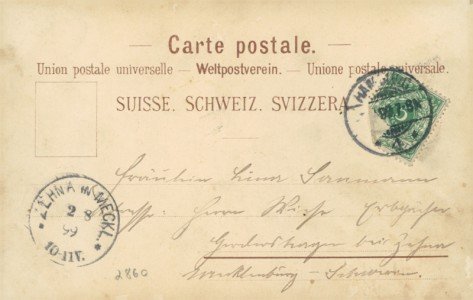 Carte postale.
Union postale universelle — Weltpostverein. — Unione postale universale.
SUISSE. SCHWEIZ. SVIZZERA
5
ZEHNA in MECKL.
2 8
99
10-11V.
Fräulein Lina
Herrn Wiese
bei Zehna
Mecklenburg - Schwerin.
2860